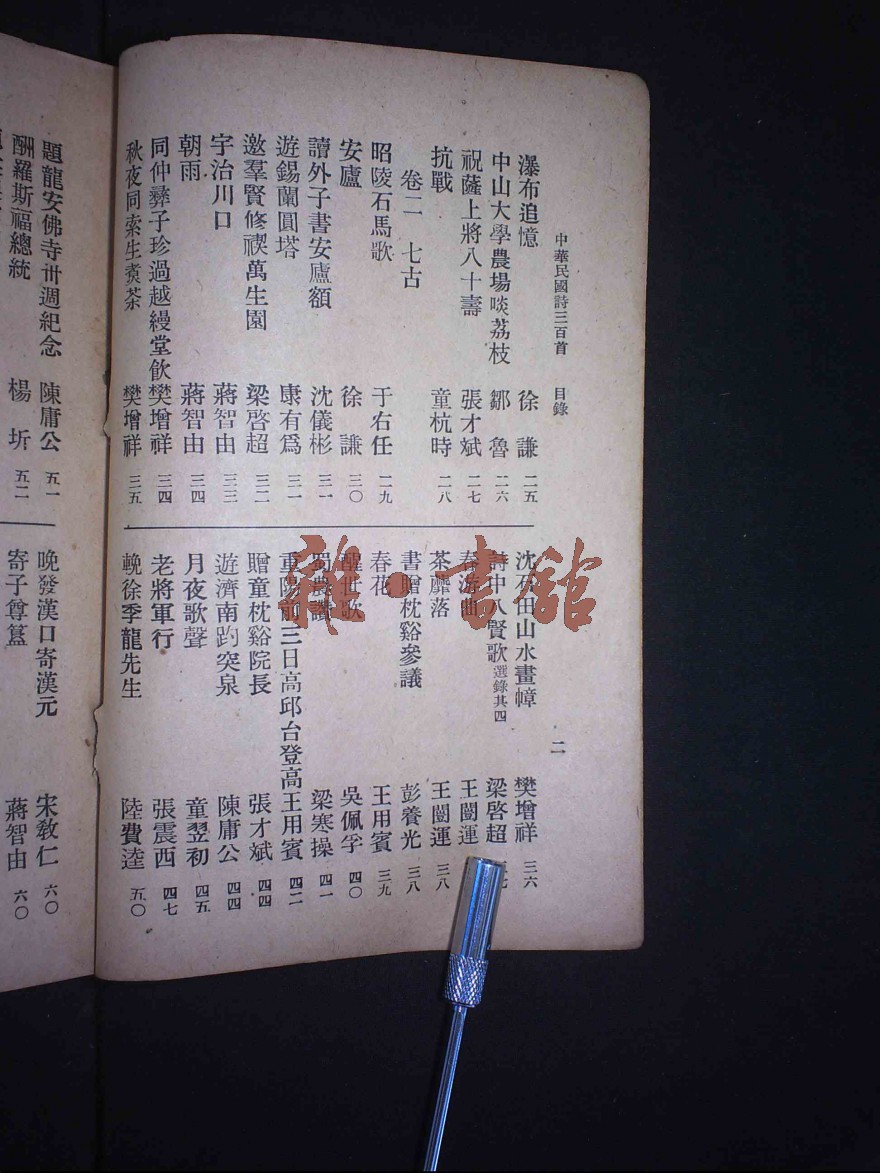 中華民國詩三百首 目錄 二
瀑布追憶 徐謙 二五
中山大學農場啖荔枝 鄒魯 二六
祝薩上將八十壽 張才斌 二七
抗戰 童杭時 二八
卷二 七古
昭陵石馬歌 于右任 二九
安廬 徐謙 三〇
讀外子書安廬額 沈儀彬 三一
遊錫蘭圓塔 康有爲 三一
邀羣賢修禊萬生園 梁啓超 三二
宇治川口 蔣智由 三三
朝雨 蔣智由 三四
同仲彝子珍過越縵堂飲 樊增祥 三四
秋夜同索生煑茶 樊增祥 三五
沈石田山水畫幛 樊增祥 三六
詩中八賢歌選錄其四 梁啓超
春游曲 王闓運
茶蘼落 王闓運 三八
書贈枕谿參議 彭養光 三八
春花 王用賓 三九
醒世歌 吳佩孚 四〇
蜀 梁寒操 四一
重陽前三日高邱台登高 王用賓 四二
贈童枕谿院長 張才斌 四四
遊濟南趵突泉 陳庸公 四四
月夜歌聲 童翌初 四五
老將軍行 張震西 四七
輓徐季龍先生 陸費逵 五〇
題龍安佛寺卅週紀念 陳庸公 五一
酬羅斯福總統 楊圻 五二
晚發漢口寄漢元 宋敎仁 六〇
寄子尊簋 蔣智由 六〇
雜·書館